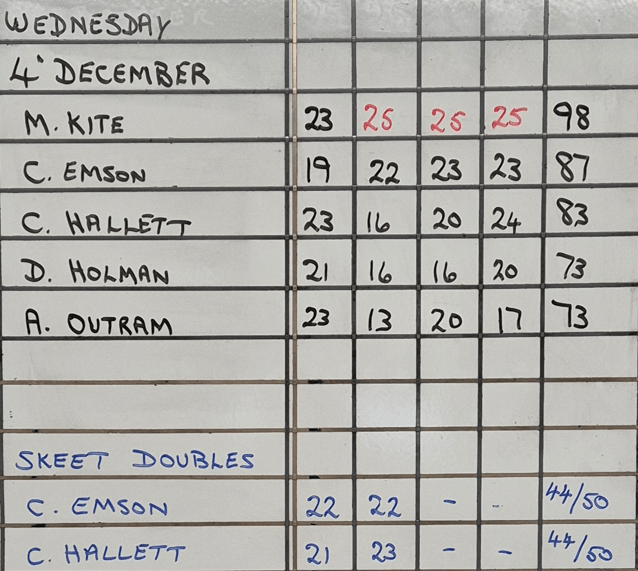 WEDNESDAY
4' DECEMBER
M. KITE 23 25 25 25 98
C. EMSON 19 22 23 23 87
C. HALLETT 23 16 20 24 83
D. HOLMAN 21 16 16 20 73
A. OUTRAM 23 13 20 17 73
SKEET DOUBLES
C. EMSON 22 22 - - 44/50
C. HALLETT 21 23 - - 44/50